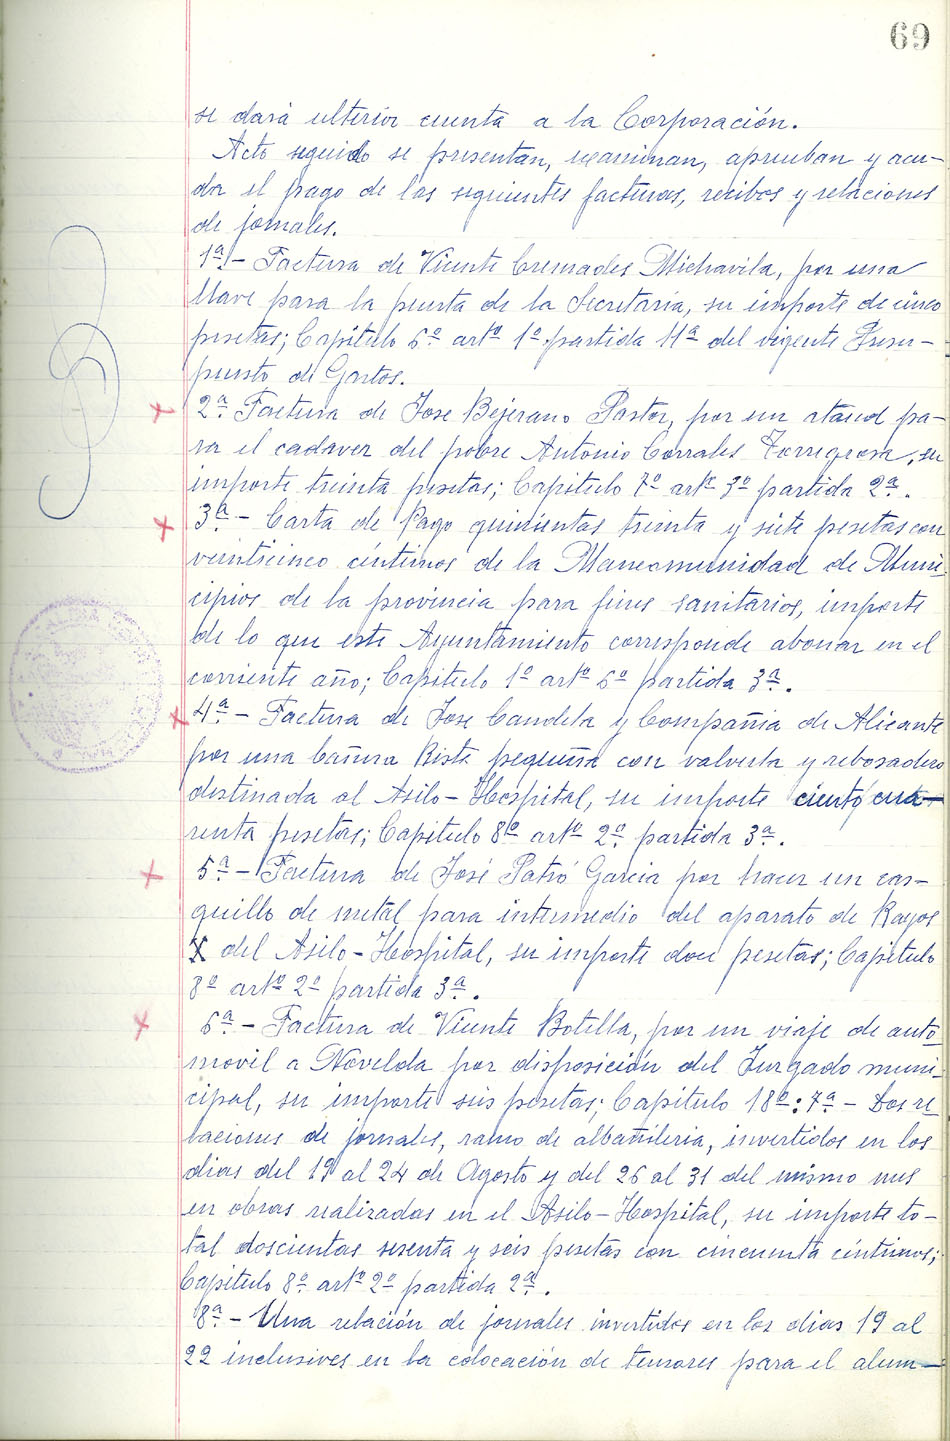 69
se dará ulterior cuenta a la Corporación.
Acto seguido se presentan, examinan, aprueban y acu-
da el pago de las siguientes facturas, recibos y relaciones
de jornales.
1ª.- Factura de Vicente Cremades Michavila, por una
llave para la puerta de la Secretaría, su importe de cinco
pesetas; Capítulo 6º artº 1º partida 11ª del vigente Presu-
puesto de Gastos.
2ª. Factura de Jose Bejerano Pastor, por un ataud pa-
ra el cadaver del pobre Antonio Corrales Torregrosa, su
importe treinta pesetas; Capitulo 7º artº 3º partida 2ª.
3ª.- Carta de Pago quinientas treinta y siete pesetas con
veinticinco céntimos de la Mancomunidad de Muni-
cipios de la provincia para fines sanitarios, importe
de lo que este Ayuntamiento corresponde abonar en el
corriente año; Capítulo 1º artº 6º partida 3ª.
4ª.- Factura de Jose Candela y Compañia de Alicante
por una bañera Rista pequeña con valvula y rebosadero
destinada al Asilo-Hospital, su importe ciento cua-
renta pesetas; Capitulo 8º artº 2º partida 3ª.
5ª.- Factura de José Patró Garcia por hacer un cas-
quillo de metal para intermedio del aparato de Rayos
X del Asilo-Hospital, su importe doce pesetas; Capítulo
8º artº 2º partida 3ª.
6ª.- Factura de Vicente Botella, por un viaje de auto
movil a Novelda por disposición del Juzgado muni-
cipal, su importe seis pesetas; Capítulo 18º: 7ª- Dos re-
laciones de jornales, ramo de albañileria, invertidos en los
dias del 19 al 24 de Agosto y del 26 al 31 del mismo mes
en obras realizadas en el Asilo-Hospital, su importe to-
tal doscientas sesenta y seis pesetas con cincuenta céntimos;
Capitulo 8º artº 2º partida 2ª.
8ª.- Una relación de jornales invertidos en los dias 19 al
22 inclusives en la colocación de tensores para el alum-